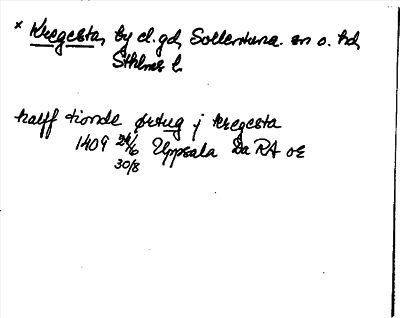 * Kregesta, by el. gd, Sollentuna sn o. hd,
Sthlms l.
halff tionde ørtug j kregesta
1409 24/6 Uppsala Da RA oe
30/8